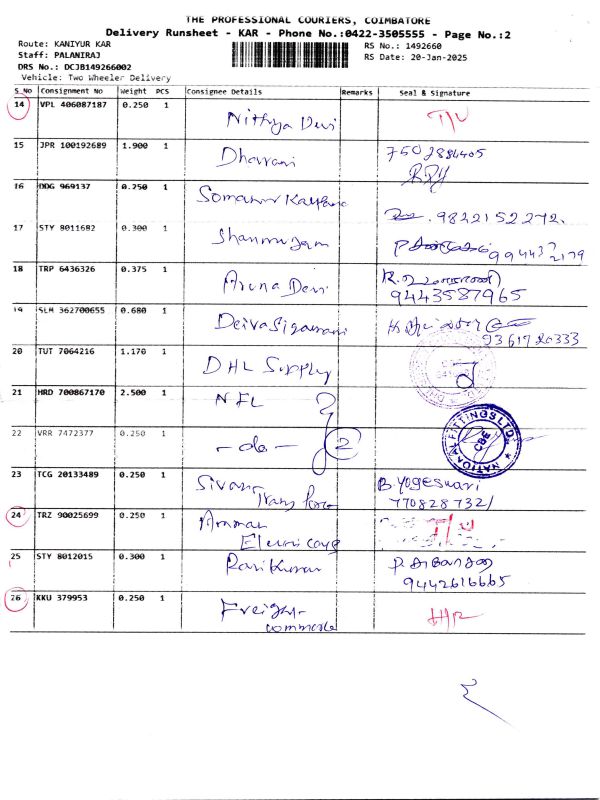 THE PROFESSIONAL COURIERS, COIMBATORE
Delivery Runsheet - KAR - Phone No.:0422-3505555 - Page No.:2
Route: KANIYUR KAR
RS No.: 1492660
Staff: PALANIRAJ
RS Date: 20-Jan-2025
DRS No.: DCJB149266002
Vehicle: Two Wheeler Delivery
S No Consignment No Weight PCS Consignee Details Remarks Seal & Signature
14 VPL 406087187 0.250 1 Nithya Devi
15 JPR 100192689 1.900 1 Dharani 7502884405
16 DDG 969137 0.250 1 Somanur 9822152272.
17 STY 8011682 0.300 1 Shanmugam
18 TRP 6436326 0.375 1 Aruna Devi
9443587965
19 SLM 362700655 0.680 1 Deivasigamani
9361720333
20 TUT 7064216 1.170 1 DHL Supply
21 HRD 700867170 2.500 1 NFL
22 VRR 7472377 0.250 1 -do- 2
NATIONAL FITTINGS LTD. CBE
23 TCG 20133489 0.250 1 B.Yogeswari
7708287321
24 TRZ 90025699 0.250 1 Amman
25 STY 8012015 0.300 1 Ravikumar
9442616665
26 KKU 379953 0.250 1 Freight